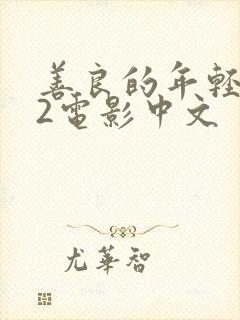 善良的年輕
2電影中文
尤華智